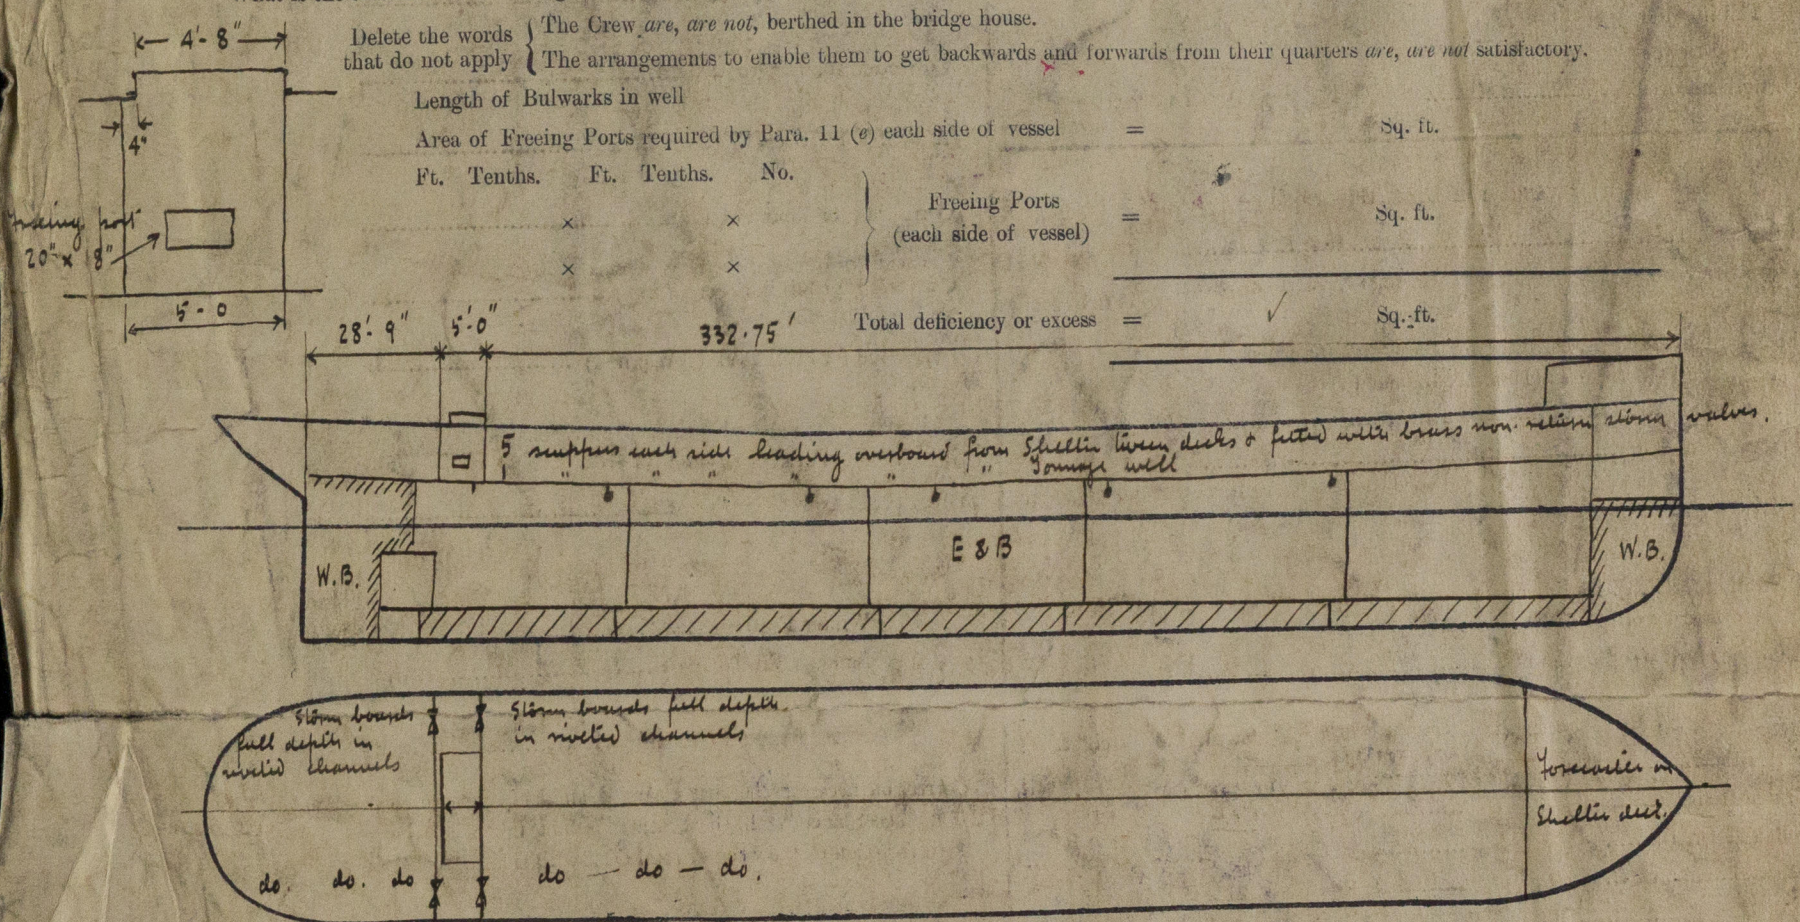 4'-8"
Delete the words
that do not apply
The Crew are, are not, berthed in the bridge house.
The arrangements to enable them to get backwards and forwards from their quarters are, are not satisfactory.
Length of Bulwarks in well
4"
Area of Freeing Ports required by Para. 11 (e) each side of vessel = Sq. ft.
Ft. Tenths. Ft. Tenths. No.
Freeing port
20" × 18"
× ×
× ×
Freeing Ports
(each side of vessel)
= Sq. ft.
5-0
28'-9" 5'-0" 332.75'
Total deficiency or excess = ✓ Sq. ft.
5 scuppers each side leading overboard from Shelter tween decks & fitted with brass non-return storm valves.
1 " " " " " Tonnage well
E & B
W.B.
W.B.
Storm boards
full depth in
riveted channels
Storm boards full depth
in riveted channels
Forecastle on
Shelter deck.
do. do. do
do — do — do.